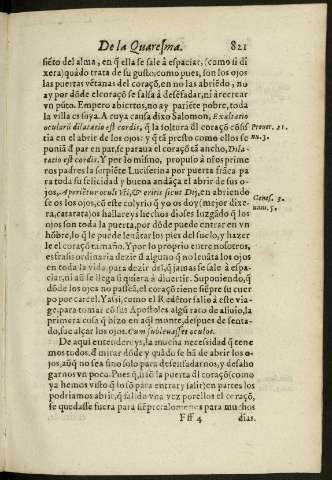 De la Quaresma. 821
siẽto del alma, en q̃ ella se sale à espaciar, (como si di
xera) quãdo trata de su gusto, como pues, son los ojos
las puertas vẽtanas del coraçõ, en no las abriẽdo, no
ay por dõde el coraçõ se salsa à desẽfadar, ni à recrear
vn pũto. Empero abiertos, no ay pariẽte pobre, toda
la villa es suya. A cuya causa dixo Salomon, Exaltatio
oculorũ dilatatio est cordis, q̃ la soltura dl coraçõ cõsis
tia en el abrir de los ojos: y q̃ tã presto como ellos se
poniã d̃ par en par, se paraua el coraçõ tã ancho, Dila-
tatio est cordis. Y por lo mismo, propuso à nr̃os prime
ros padres la serpiẽte Luciferina por puerta frãca pa
ra toda su felicidad y buena andãça el abrir de sus o-
jos, Aperiẽtur oculi vr̃i, & eritis sicut Dij, en abriẽdo
se os los ojos, cõ este colyrio q̃ yo os doy (mejor dixe
ra, catarata) os hallareys hechos dioses. Iuzgãdo q̃ los
ojos son toda la puerta, por dõde puede entrar en vn
hõbre, lo q̃ le puede leuãtar los pies del suelo, y hazer
le el coraçõ tamaño. Y por lo proprio entre nosotros,
es frasis ordinaria dezir d̃ alguno q̃ no leuãta los ojos
en toda la vida, para dezir del, q̃ jamas se sale à espa-
ciar, ni aũ se llega si quiera à diuertir. Suponiendo, q̃
dõde los ojos no passeã, el coraçõ tiene siẽpre su cuer
po por carcel. Y assi, como el Redẽtor salio à este via-
ge, para tomar cõ sus Apostoles algũ rato de aliuio, la
primera cosa q̃ hizo en aq̃l monte, despues de senta-
do, fue alçar los ojos. Cum subleuasset oculos.
De aqui entendereys, la mucha necessidad q̃ tene
mos todos, d̃ mirar dõde y quãdo se hã de abrir los o-
jos, aũq̃ no sea sino solo para desenfadarnos, y desaho
garnos vn poco. Pues q̃, si es la puerta dl coraçõ (como
ya hemos visto q̃ lo es para entrar y salir) en partes los
podriamos abrir, q̃ salido vna vez por ellos el coraçõ,
se quedasse fuera para siẽpre: alomenos para muchos
Fff 4 dias.
Prouer. 21.
nu. 3.
Genes. 3.
num. 5.